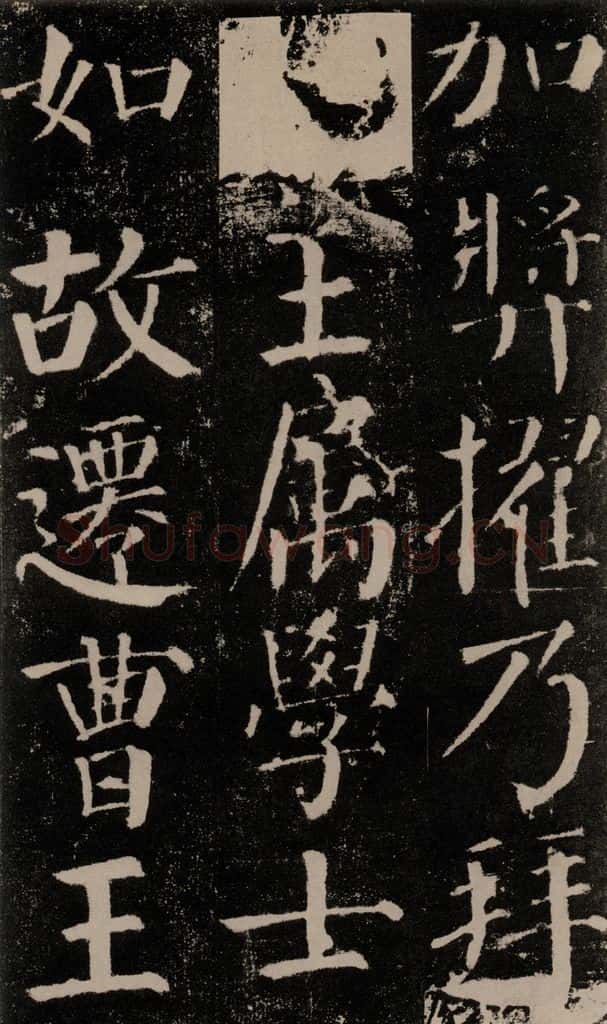 加獎擢乃拜
王屬學士
如故遷曹王
Shufawang.CN